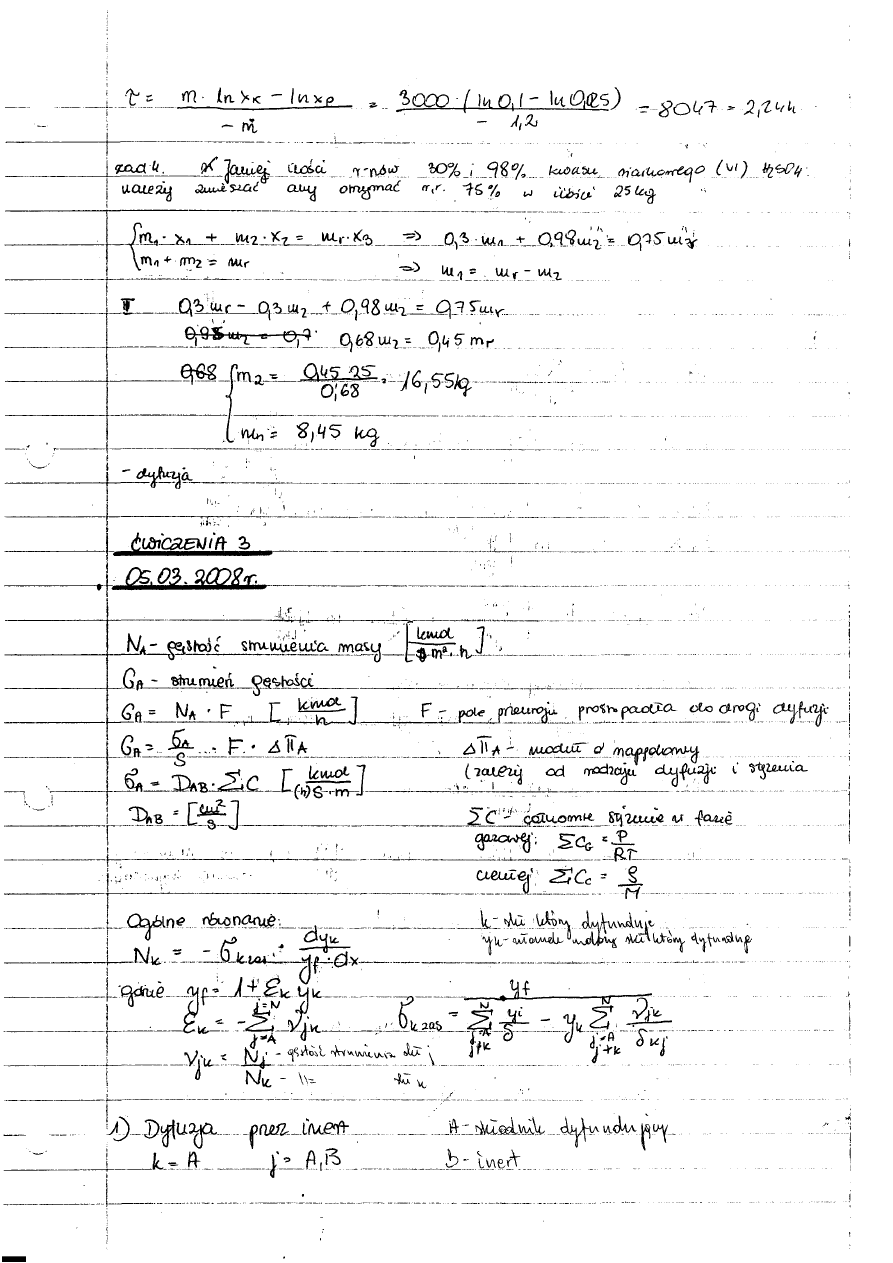 τ = m · ln xk − ln xp / − ṁ = 3000 · (ln 0,1 − ln 0,25) / − 1,2 = 8047 = 2,24h
zad 4. Jakiej ilości r-rów 30% i 98% kwasu siarkowego (VI) H2SO4
należy zmieszać aby otrzymać r.r. 75% w ilości 25kg
m1 · x1 + m2 · x2 = mr · x3 => 0,3 · m1 + 0,98 m2 = 0,75 mr
m1 + m2 = mr => m1 = mr − m2
I 0,3 mr − 0,3 m2 + 0,98 m2 = 0,75 mr
0,98 m2 = 0,7 0,68 m2 = 0,45 mr
0,68 m2 = 0,45 25 / 0,68 = 16,55kg
m1 = 8,45 kg
- dyfuzja
ĆWICZENIA 3
05.03.2008r.
NA - gęstość strumienia masy [kmol / m² · h]
GA - strumień gęstości
GA = NA · F [kmol / h] F - pole przekroju prostopadła do drogi dyfuzji
GA = δA / S · F · ΔΠA ΔΠA - moduł napędowy
δA = DAB · ΣC [kmol / (h) s · m] (zależy od rodzaju dyfuzji i stężenia
DAB = [cm² / s] ΣC - całkowite stężenie w fazie
gazowej: ΣCG = P / RT
ciekłej ΣCc = ρ / M
Ogólne równanie: k - skł który dyfunduje
Nk = − δk zas · dyk / yf · dx yk - ułamek molowy skł który dyfunduje
gdzie yf = 1 + εk yk
εk = − Σ j=A j=N νjk δk zas = yf / Σ j=A j≠k N yi / δ − yk Σ j=A j≠k N νjk / δkj
νjk = Nj / Nk - gęstość strumienia skł j
- 11 = skł k
1) Dyfuzja przez inert A - składnik dyfundujący
k = A j = A, B B - inert